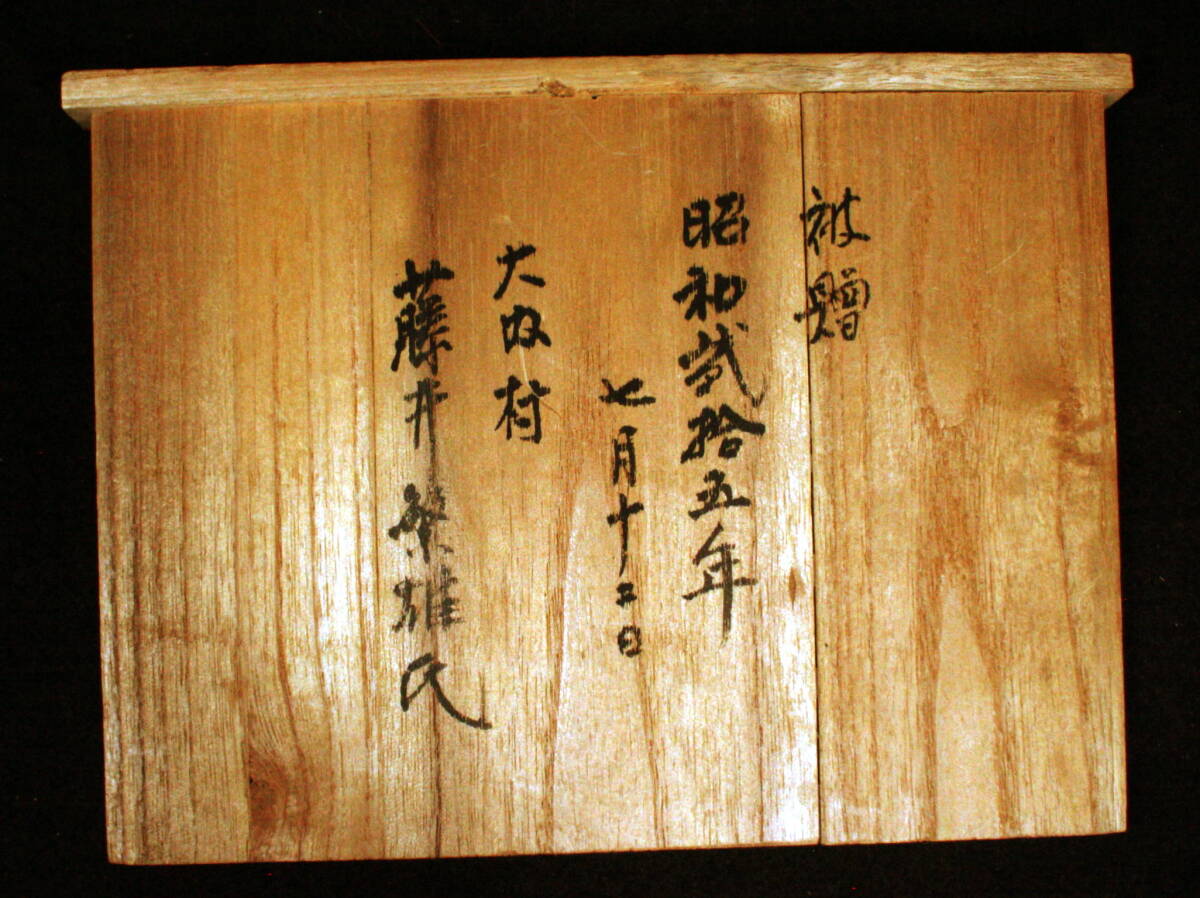 被贈
昭和弐拾五年
七月十二日
藤井繁雄氏